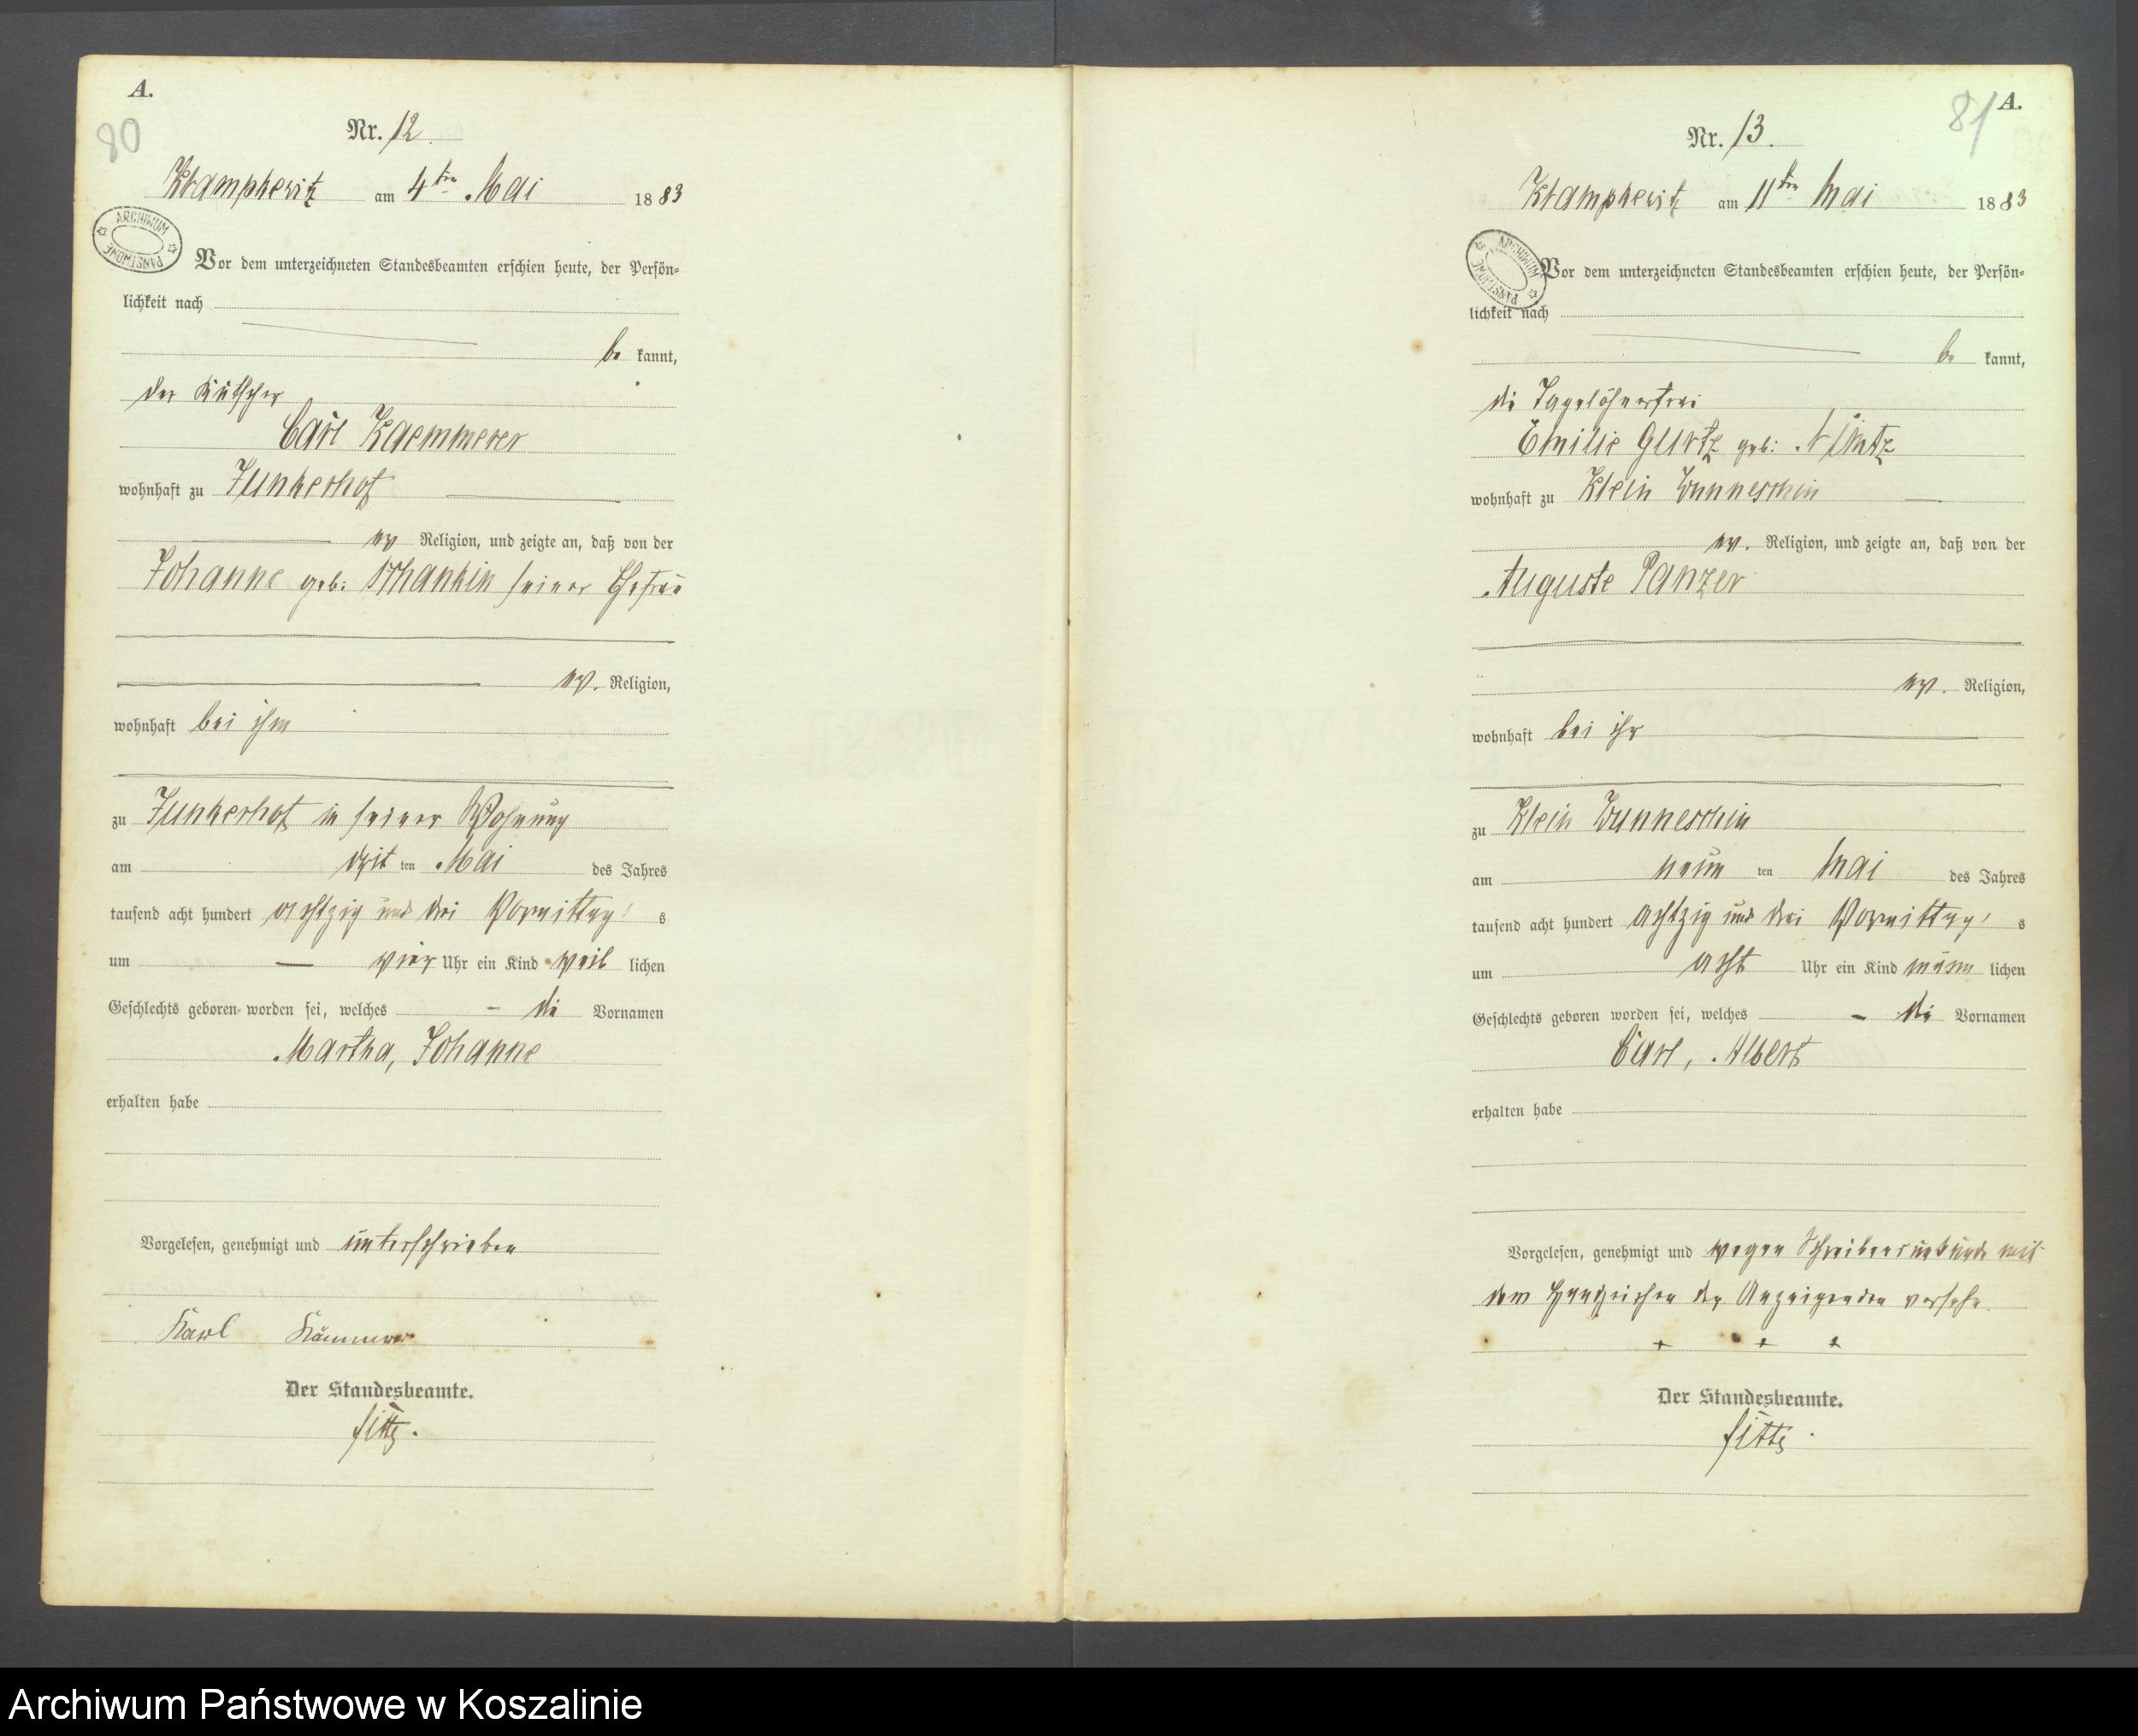 A.
80
Nr. 12.
Krampkewitz am 4ten Mai 1883
ARCHIWUM PAŃSTWOWE
Vor dem unterzeichneten Standesbeamten erschien heute, der Persön-
lichkeit nach
be kannt,
der Kutscher
Carl Kaemmerer
wohnhaft zu Junkerhof
ev Religion, und zeigte an, daß von der
Johanne geb: seiner Ehefrau
ev. Religion,
wohnhaft bei ihm
zu Junkerhof in seiner Wohnung
am drit ten Mai des Jahres
tausend acht hundert achtzig und drei Vormittag s
um vier Uhr ein Kind weib lichen
Geschlechts geboren worden sei, welches die Vornamen
Martha, Johanne
erhalten habe
Vorgelesen, genehmigt und unterschrieben
Karl Kämmerer
Der Standesbeamte.
A.
81
Nr. 13.
Krampkewitz am 11ten Mai 1883
ARCHIWUM PAŃSTWOWE
Vor dem unterzeichneten Standesbeamten erschien heute, der Persön-
lichkeit nach
be kannt,
die Tagelöhnerfrau
Emilie Gurtz geb:
wohnhaft zu Klein Wunneschin
ev. Religion, und zeigte an, daß von der
Auguste Panzer
ev. Religion,
wohnhaft bei ihr
zu Klein Wunneschin
am neun ten Mai des Jahres
tausend acht hundert achtzig und drei Vormittag s
um acht Uhr ein Kind männ lichen
Geschlechts geboren worden sei, welches die Vornamen
Carl, Albert
erhalten habe
Vorgelesen, genehmigt und wegen Schreibensunkunde mit
dem Handzeichen der Anzeigenden versehn.
+ + +
Der Standesbeamte.
Archiwum Państwowe w Koszalinie